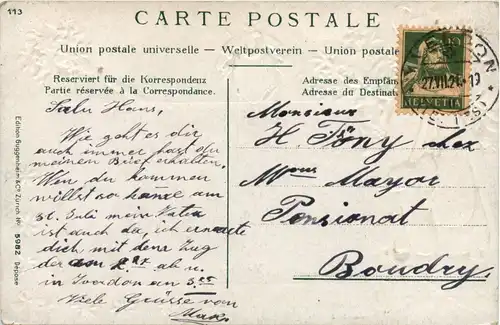 113
CARTE POSTALE
Union postale universelle — Weltpostverein — Union postale
Reserviert für die Korrespondenz
Partie réservée à la Correspondance.
Adresse des Empfän
Adresse du Destinat
27.VII.21.-19
HELVETIA
Salu Hans,
Wie geht es dir
auch immer fast du
meinen Brief erhalten.
Wen du kommen
willst so kanze am
30. Juli mein Vater
ist auch da, ich erwarte
dich mit dem Zug
der am 2 27 ab u.
in Iverdon an 3.05
Viele Grüsse von
Max.
Monsieur
H. Töny chez
Mayor
Pensionat
Boudry.
Edition Guggenheim & Co. Zürich No. 5982 Déposé